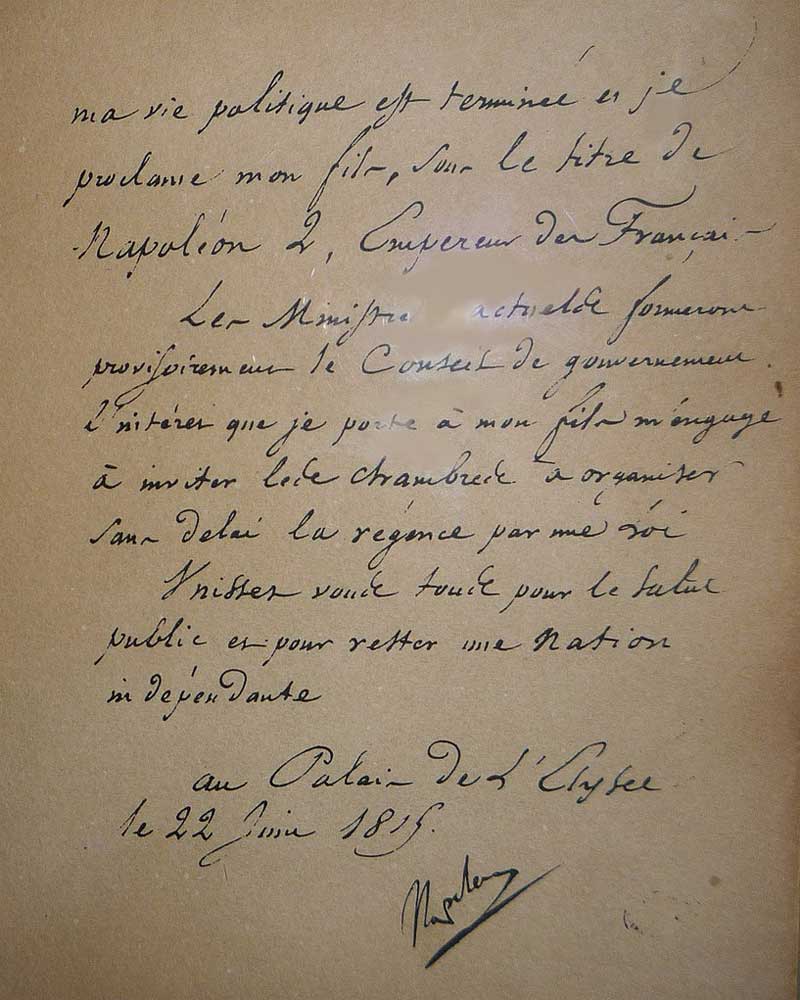 ma vie politique est terminée et je
proclame mon fils, sous le titre de
Napoléon 2, Empereur des Français
Les Ministres actuels formeront
provisoirement le Conseil de gouvernement.
L'intéret que je porte à mon fils m'engage
à inviter les chambres à organiser
sans delai la régence par une loi
Unissez vous tous pour le salut
public et pour rester une Nation
indépendante
au Palais de L'Elysée
le 22 Juin 1815.
Napoleon